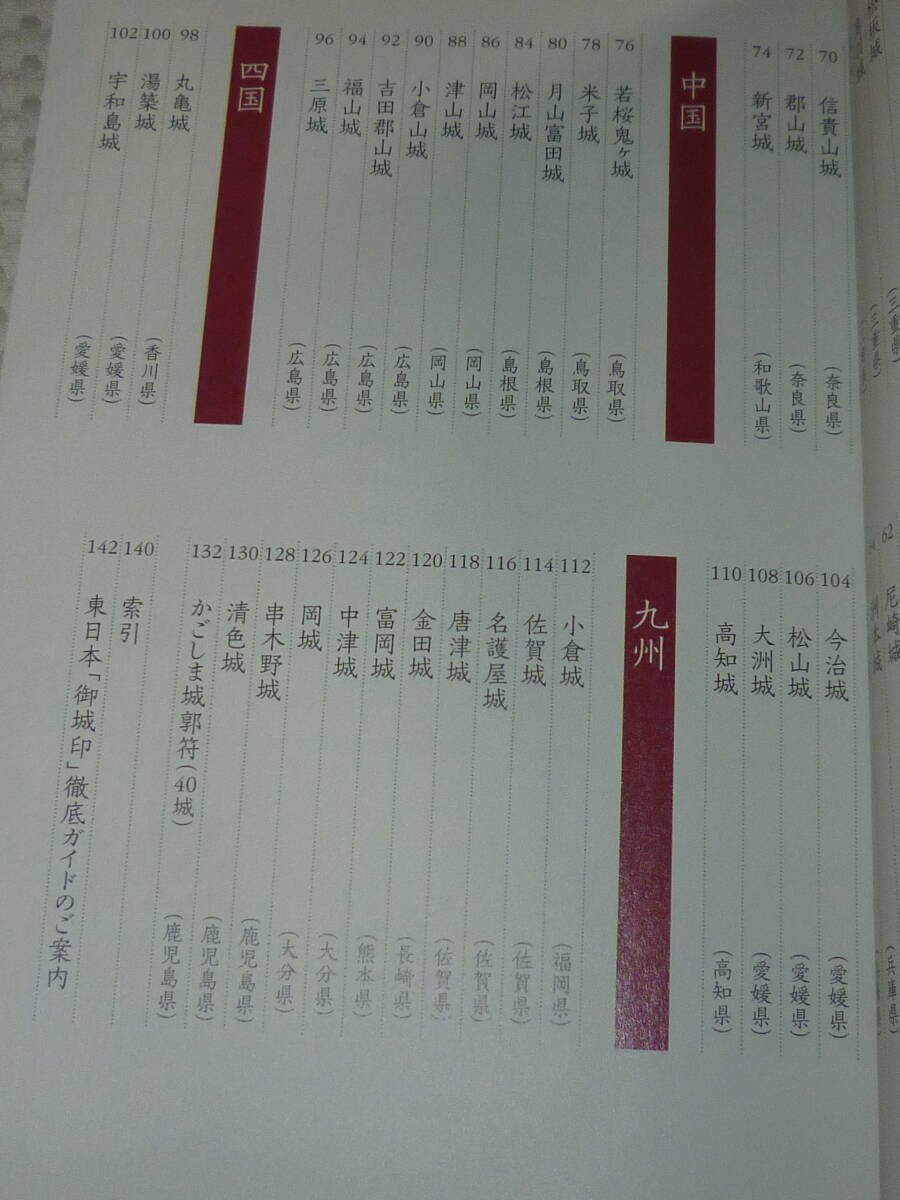 (三重県)
(三重県)
70 信貴山城 (奈良県)
72 郡山城 (奈良県)
74 新宮城 (和歌山県)
中国
76 若桜鬼ヶ城 (鳥取県)
78 米子城 (鳥取県)
80 月山富田城 (島根県)
84 松江城 (島根県)
86 岡山城 (岡山県)
88 津山城 (岡山県)
90 小倉山城 (広島県)
92 吉田郡山城 (広島県)
94 福山城 (広島県)
96 三原城 (広島県)
四国
98 丸亀城 (香川県)
100 湯築城 (愛媛県)
102 宇和島城 (愛媛県)
62 尼崎城 (兵庫県)
104 今治城 (愛媛県)
106 松山城 (愛媛県)
108 大洲城 (愛媛県)
110 高知城 (高知県)
九州
112 小倉城 (福岡県)
114 佐賀城 (佐賀県)
116 名護屋城 (佐賀県)
118 唐津城 (佐賀県)
120 金田城 (長崎県)
122 富岡城 (熊本県)
124 中津城 (大分県)
126 岡城 (大分県)
128 串木野城 (鹿児島県)
130 清色城 (鹿児島県)
132 かごしま城郭符(40城) (鹿児島県)
140 索引
142 東日本「御城印」徹底ガイドのご案内